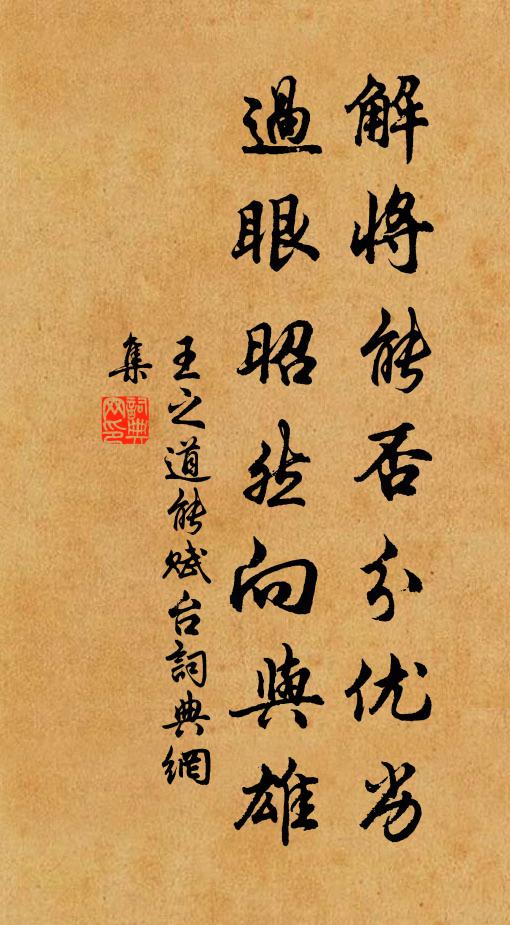 解将能否分优劣
过眼昭然向與雄
王之道能赋台詞典網
集
詞典網印